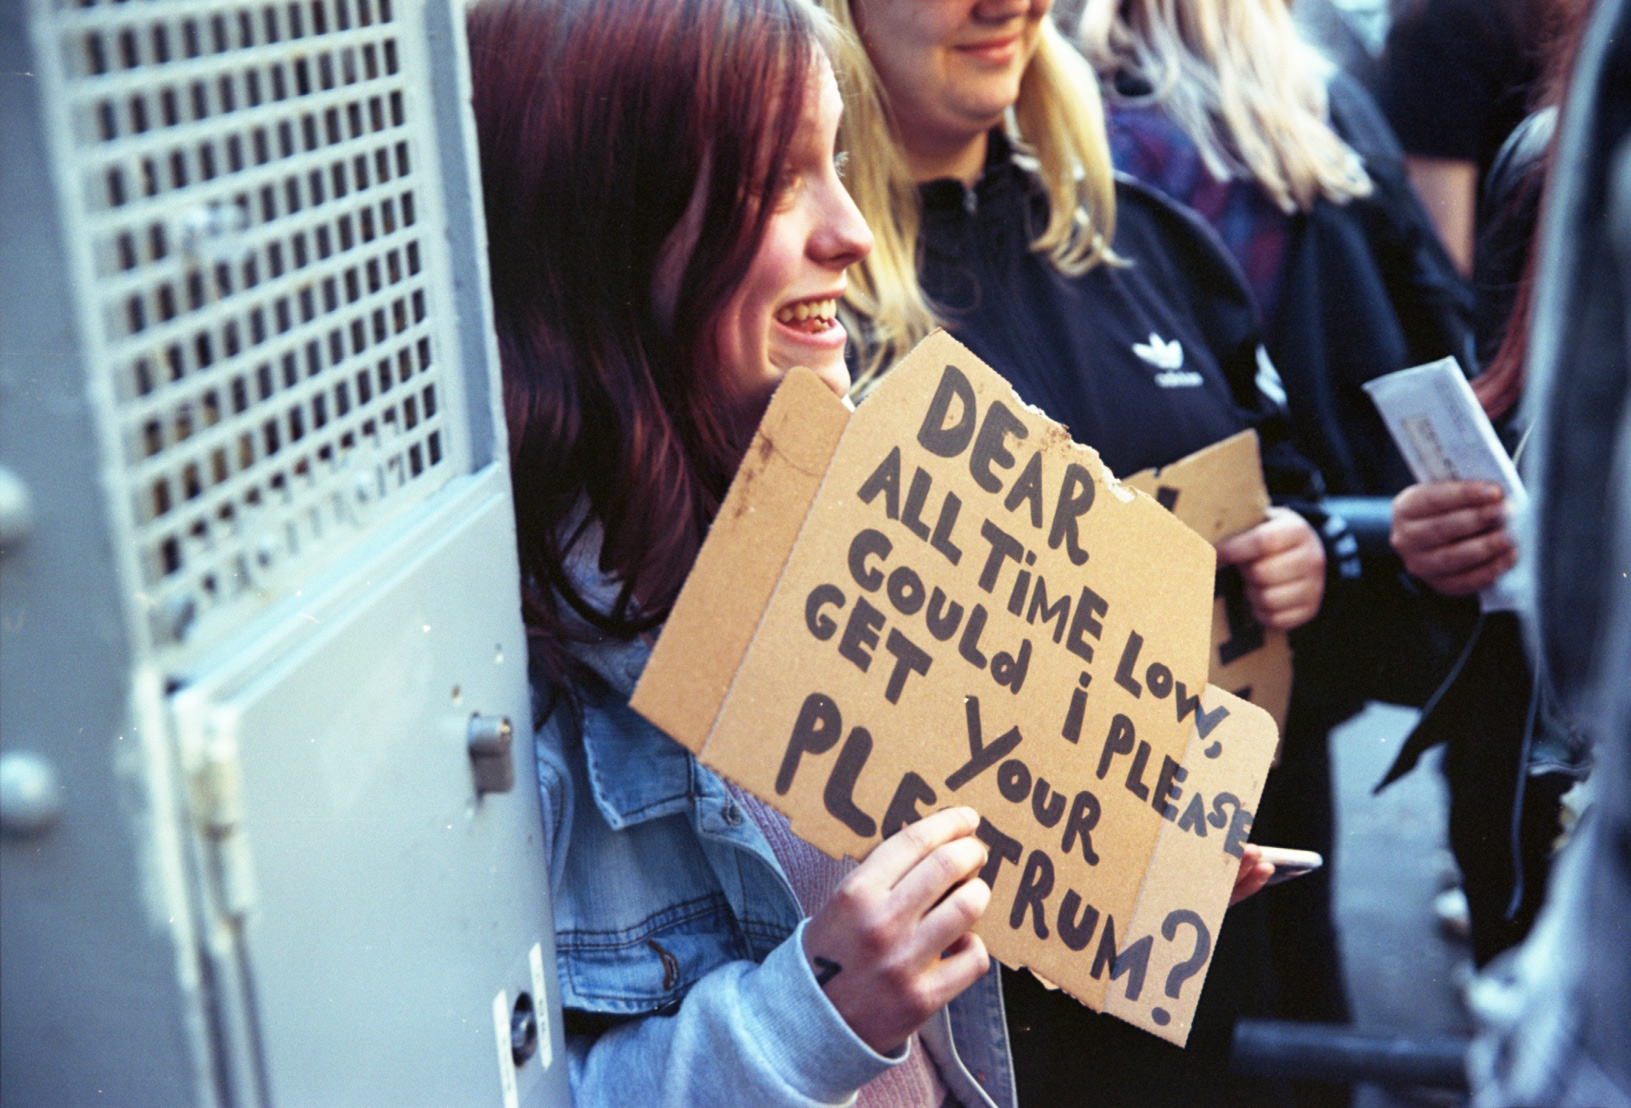 DEAR
ALL TiME LOW,
COULd i PLEASE
GET YOUR
PLECTRUM?
adidas